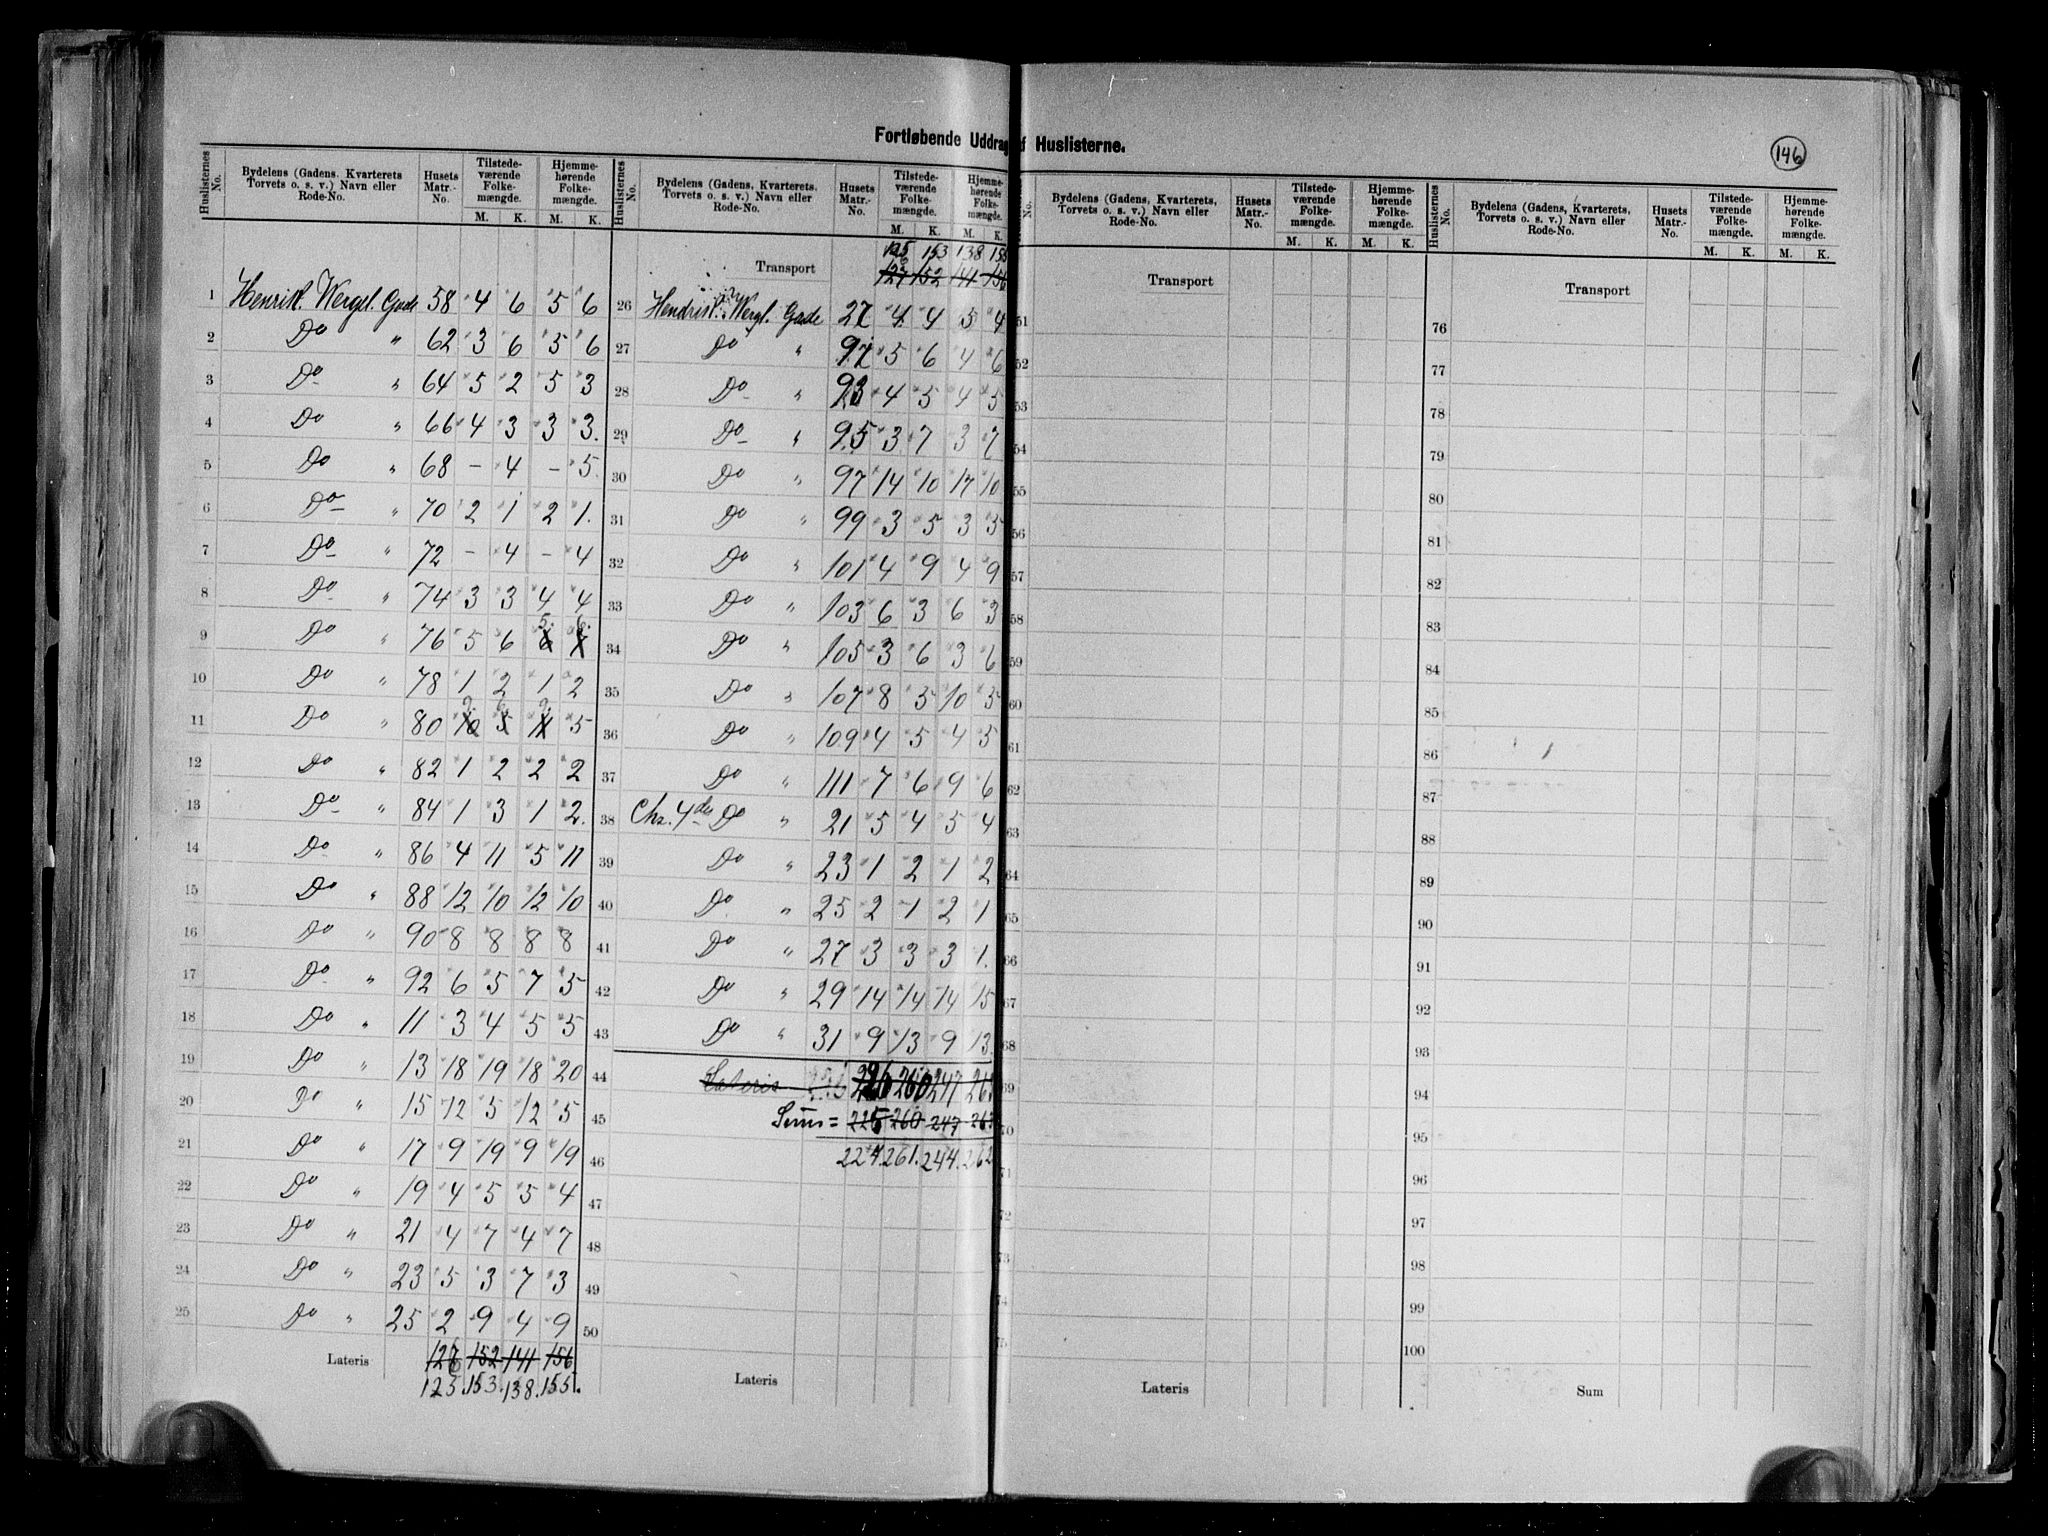 Fortløbende Uddrag af Huslisterne.
146
Huslisternes No. Bydelens (Gadens, Kvarterets Torvets o. s. v.) Navn eller Rode-No. Husets Matr.-No. Tilstede-værende Folke-mængde. M. K. Hjemme-hørende Folke-mængde. M. K.
1 Henrik Wergel. Gade 58 4 6 5 6
2 Do " 62 3 6 5 6
3 Do " 64 5 2 5 3
4 Do " 66 4 3 3 3.
5 Do " 68 – 4 – 5.
6 Do " 70 2 1 2 1.
7 Do " 72 – 4 – 4
8 Do " 74 3 3 4 4
9 Do " 76 5 6 5. 6.
10 Do " 78 1 2 1 2
11 Do " 80 5
12 Do " 82 1 2 2 2
13 Do " 84 1 3 1 2.
14 Do " 86 4 11 5 11
15 Do " 88 12 10 12 10
16 Do " 90 8 8 8 8
17 Do " 92 6 5 7 5
18 Do " 11 3 4 5 5
19 Do " 13 18 19 18 20
20 Do " 15 12 5 12 5
21 Do " 17 9 19 9 19
22 Do " 19 4 5 5 4
23 Do " 21 4 7 4 7
24 Do " 23 5 3 7 3
25 Do " 25 2 9 4 9
Lateris 152 141 156
125 153. 138. 155.
Huslisternes No. Bydelens (Gadens, Kvarterets, Torvets o. s. v.) Navn eller Rode-No. Husets Matr.-No. Tilstede-værende Folke-mængde. M. K. Hjemme-hørende Folke-mængde. M. K.
125 153 138
Transport 127 152 141 156
26 Hendrik Wergl. Gade 27 4 4 5 4
27 Do " 6 4 6
28 Do " 93 4 5 4 5
29 Do " 95 3 7 3 7
30 Do " 97 14 10 17 10
31 Do " 99 3 5 3 5
32 Do " 101 4 9 4 9
33 Do " 103 6 3 6 3
34 Do " 105 3 6 3 6
35 Do " 107 8 5 10 5
36 Do " 109 4 5 4 5
37 Do " 111 7 6 9 6
38 Chr. 4des Do " 21 5 4 5 4
39 Do " 23 1 2 1 2
40 Do " 25 2 1 2 1
41 Do " 27 3 3 3 1.
42 Do " 29 14 14 14 15
43 Do " 31 9 13 9 13.
44 Lateris 260 247
45 Sum = 225 260 247
46 224. 261. 244. 262
47
48
49
50
Lateris
No. Bydelens (Gadens, Kvarterets, Torvets o. s. v.) Navn eller Rode-No. Husets Matr.-No. Tilstede-værende Folke-mængde. M. K. Hjemme-hørende Folke-mængde. M. K.
Transport
51
52
53
54
55
56
57
58
59
60
61
62
63
64
65
66
67
68
69
70
71
72
73
74
75
Lateris
Huslisternes No. Bydelens (Gadens, Kvarterets, Torvets o. s. v.) Navn eller Rode-No. Husets Matr.-No. Tilstede-værende Folke-mængde. M. K. Hjemme-hørende Folke-mængde. M. K.
Transport
76
77
78
79
80
81
82
83
84
85
86
87
88
89
90
91
92
93
94
95
96
97
98
99
100
Sum